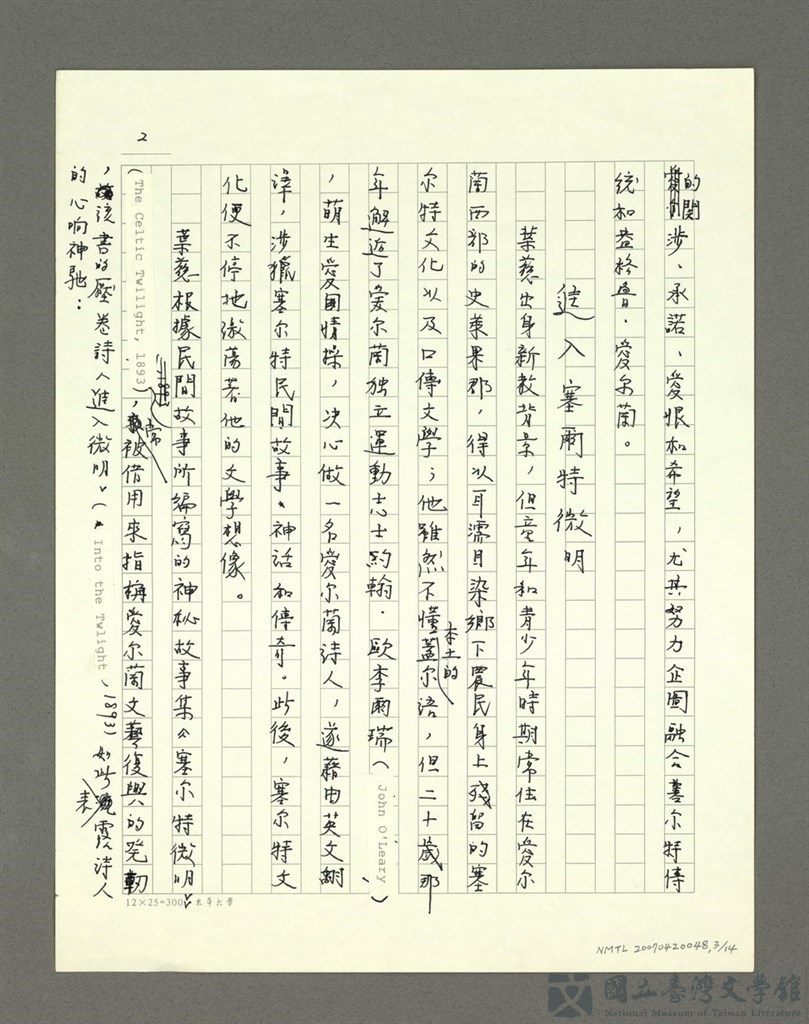 2
的關涉、承諾、愛恨和希望，尤其努力企圖融合蓋尔特傳
統和盎格魯·愛尔蘭。
進入塞爾特微明
葉慈出身新教背景，但童年和青少年時期常住在愛尔
蘭西部的史萊果郡，得以耳濡目染鄉下農民身上殘留的塞
尔特文化以及口傳文學；他雖然不懂本土的蓋尔語，但二十歲那
年邂逅了愛尔蘭独立運動志士約翰·歐李爾瑞（John O'Leary）
，萌生愛国情操，决心做一名愛尔蘭詩人，遂藉由英文翻
譯，涉獵塞尔特民間故事、神話和傳奇。此後，塞尔特文
化便不停地激荡著他的文學想像。
葉慈根據民間故事所編寫的神秘故事集《塞尔特微明》
(The Celtic Twilight, 1893)，常被借用來指稱愛尔蘭文藝復興的発軔
，該書的壓卷詩〈進入微明〉(“Into the Twlight”, 1893) 如此表露詩人
的心响神馳：
12×25=300 東華大學
NMTL 20070420048, 3/14
國立臺灣文學館
National Museum of Taiwan Literature